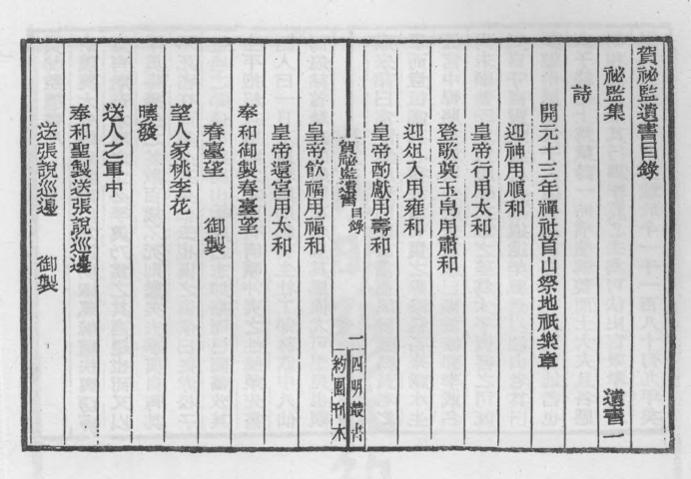 賀祕監遺書目錄
祕監集 遺書一
詩
開元十三年禪社首山祭地祇樂章
迎神用順和
皇帝行用太和
登歌奠玉帛用肅和
迎俎入用雍和
皇帝酌獻用壽和
賀祕監遺書 目錄 一 四明叢書 約園刊本
皇帝飲福用福和
皇帝還宮用太和
奉和御製春臺望
春臺望 御製
望人家桃李花
曉發
送人之軍中
奉和聖製送張說巡邊
送張說巡邊 御製